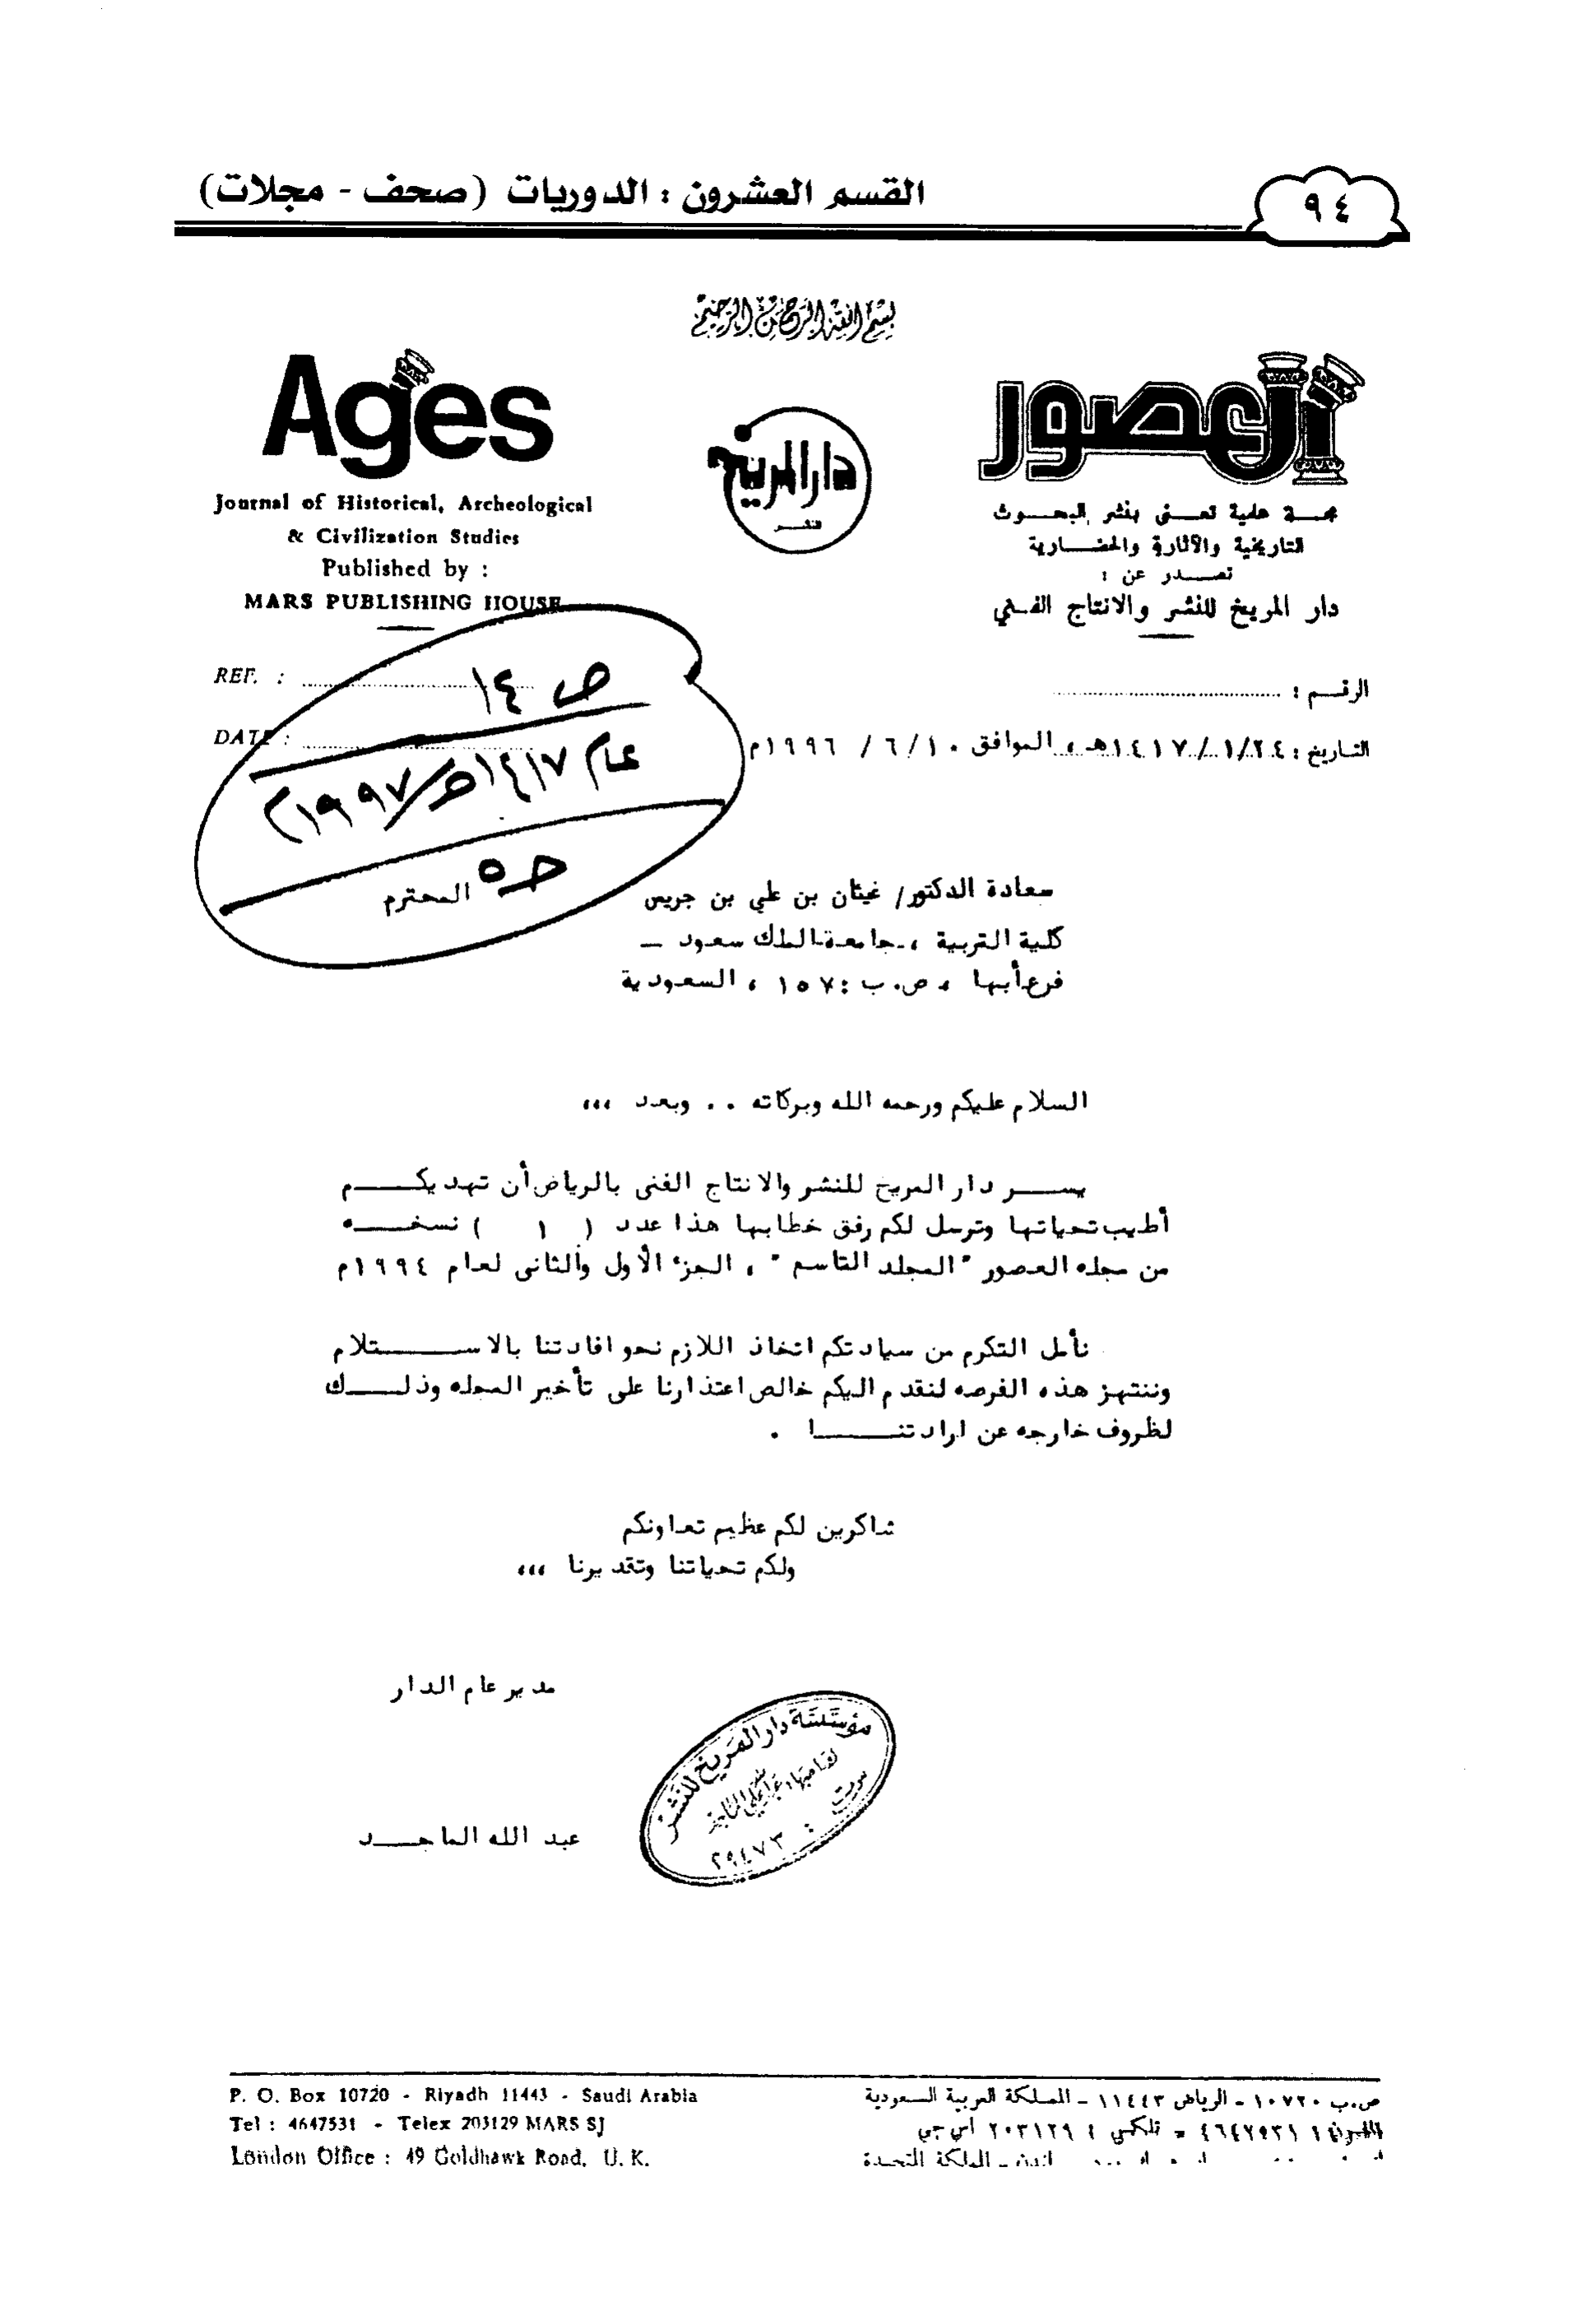 ٩٤
القسم العشرون : الدوريات (صحف - مجلات)
بسم الله الرحمن الرحيم
العصور
مجلة علمية تعنى بنشر البحوث
التاريخية والآثارية والحضارية
تصدر عن :
دار المريخ للنشر والانتاج الفني
دار المريخ
للنشر
Ages
Journal of Historical, Archeological
& Civilization Studies
Published by :
MARS PUBLISHING HOUSE
الرقم :
التاريخ : ١/٢٤/ ١٤١٧هـ ، الموافق ٦/١٠/ ١٩٩٦م
REF. :
DATE :
ص ١٤
عام ١٤١٧هـ/١٩٩٧م
سعادة الدكتور/ غيثان بن علي بن جريس المحترم
كلية التربية ، جامعة الملك سعود –
فرع أبها ، ص.ب : ١٥٧ ، السعودية
السلام عليكم ورحمه الله وبركاته .. وبعد ،،،
يسر دار المريخ للنشر والانتاج الفنى بالرياض أن تهديكم
أطيب تحياتها وترسل لكم رفق خطابها هذا عدد ( ١ ) نسخه
من مجله العصور "المجلد التاسع" ، الجزء الأول والثانى لعام ١٩٩٤م
نأمل التكرم من سيادتكم اتخاذ اللازم نحو افادتنا بالاستلام
وننتهز هذه الفرصه لنقدم اليكم خالص اعتذارنا على تأخير المجله وذلك
لظروف خارجه عن ارادتنا .
شاكرين لكم عظيم تعاونكم
ولكم تحياتنا وتقديرنا ،،،
مدير عام الدار
عبد الله الماجد
مؤسسة دار المريخ للنشر
٢٩٤٧٣
P. O. Box 10720 - Riyadh 11443 - Saudi Arabia
Tel : 4647531 - Telex 203129 MARS SJ
London Office : 49 Goldhawk Road, U. K.
ص.ب ١٠٧٢٠ - الرياض ١١٤٤٣ - المملكة العربية السعودية
تلكس : ٢٠٣١٢٩ اس جي
لندن - المملكة المتحدة